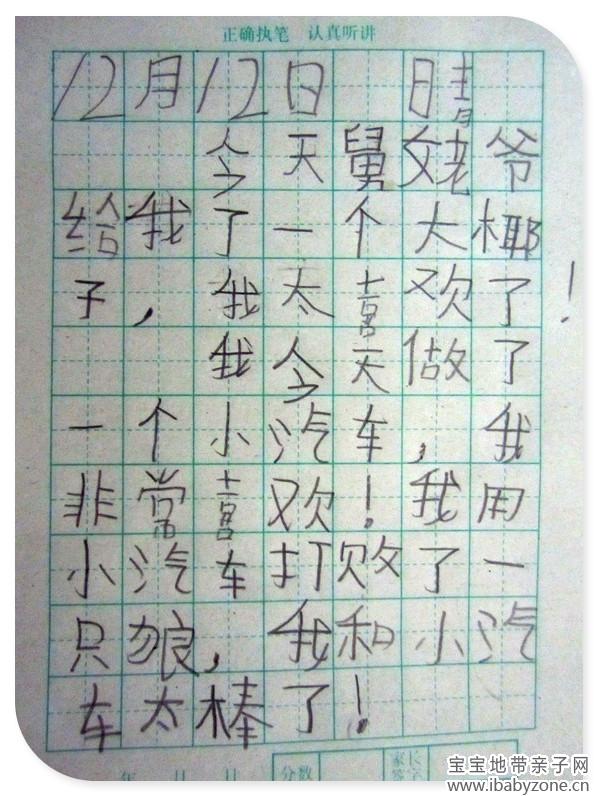 正确执笔 认真听讲
12月12日 晴
今天舅姥爷
给我了一个大椰
子，我太喜欢了！
我今天做了
一个小汽车，我
非常喜欢！我用
小汽车打败了一
只狼，我和小汽
车太棒了！
年 月 日 分数 家长
签字
宝宝地带亲子网
www.ibabyzone.cn